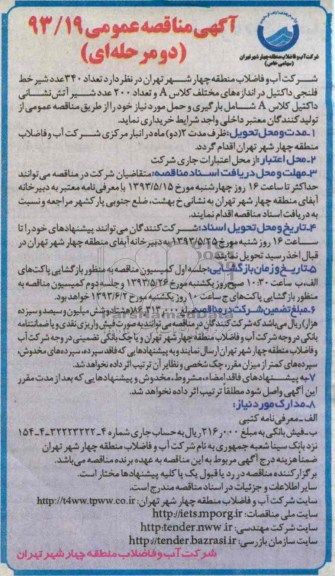 آگهی مناقصه عمومی ۹۳/۱۹
(دو مرحله‌ای)
شرکت آب و فاضلاب منطقه چهار شهر تهران
(سهامی خاص)
شرکت آب و فاضلاب منطقه چهار شهر تهران در نظر دارد تعداد ۳۴۰ عدد شیر خط
فلنجی داکتیل در اندازه‌های مختلف کلاس A و تعداد ۲۰۰ عدد شیر آتش نشانی
داکتیل کلاس A شامل بارگیری و حمل مورد نیاز خود را از طریق مناقصه عمومی از
تولیدکنندگان معتبر داخلی واجد شرایط خریداری نماید.
۱ـ مدت و محل تحویل: ظرف مدت ۲ (دو) ماه در انبار مرکزی شرکت آب و فاضلاب
منطقه چهار شهر تهران اقدام گردد.
۲ـ محل اعتبار: از محل اعتبارات جاری شرکت
۳ـ مهلت و محل دریافت اسناد مناقصه: متقاضیان شرکت در مناقصه می‌توانند
حداکثر تا ساعت ۱۶ روز چهارشنبه مورخ ۱۳۹۳/۵/۱۵ با معرفی‌نامه معتبر به دبیرخانه
آبفای منطقه چهار تهران به نشانی خ بهشت، ضلع جنوبی پارکشهر مراجعه و نسبت
به دریافت اسناد مناقصه اقدام نمایند.
۴ـ تاریخ و محل تحویل اسناد: شرکت‌کنندگان می‌توانند پیشنهادهای خود را تا
ساعت ۱۶ روز شنبه مورخ ۱۳۹۳/۵/۲۵ به دبیرخانه آبفای منطقه چهار شهر تهران در
قبال اخذ رسید تحویل نمایند.
۵ـ تاریخ و زمان بازگشایی: جلسه اول کمیسیون مناقصه به منظور بازگشایی پاکت‌های
الف، ب ساعت ۱۰:۳۰ صبح روز یکشنبه مورخ ۱۳۹۳/۵/۲۶ و جلسه دوم کمیسیون مناقصه به
منظور بازگشایی پاکت‌های ج ساعت ۱۰ روز یکشنبه مورخ ۱۳۹۳/۶/۲ خواهد بود.
۶ـ مبلغ تضمین شرکت در مناقصه: مبلغ ۸۶/۳۱۲/۰۰۰ (هشتاد و شش میلیون و سیصد و سیزده
هزار) ریال می‌باشد که شرکت‌کنندگان در مناقصه می‌توانند به صورت فیش واریز نقدی و یا ضمانتنامه
بانکی در وجه شرکت آب و فاضلاب منطقه چهار شهر تهران و یا چک بانکی تضمینی در وجه شرکت آب
و فاضلاب منطقه چهار شهر تهران ارسال نمایند و به پیشنهادهایی که فاقد سپرده، سپرده‌های مخدوش،
سپرده‌های کمتر از میزان مقرر، چک شخصی و نظایر آن ترتیب اثر داده نخواهد شد.
۷ـ به پیشنهادهای فاقد امضاء، مشروط، مخدوش و پیشنهادهایی که بعد از مدت مقرر
این آگهی واصل شود مطلقاً ترتیب اثر داده نخواهد شد.
۸ـ مدارک مورد نیاز:
الف ـ معرفی‌نامه کتبی
ب ـ فیش بانکی به مبلغ ۲۱۶/۰۰۰ ریال به حساب جاری شماره ۴ـ۳۳۲۲۳۲۲۲ـ۴ـ۱۵۴
نزد بانک سینا شعبه جمهوری به نام شرکت آب و فاضلاب منطقه چهار شهر تهران
ضمناً هزینه درج آگهی مربوط به این مناقصه به عهده برنده مناقصه می‌باشد.
برگزارکننده مناقصه در رد یا قبول یک یا کلیه پیشنهادها مختار است.
سایر اطلاعات و جزئیات در اسناد مناقصه مندرج است.
سایت شرکت آب و فاضلاب منطقه چهار شهر تهران: http://t4ww.tpww.co.ir
سایت ملی مناقصات: http://iets.mporg.ir
سایت شرکت مهندسی: http:tender.nww.ir
سایت سازمان بازرسی: http://tender.bazrasi.ir
شرکت آب و فاضلاب منطقه چهار شهر تهران